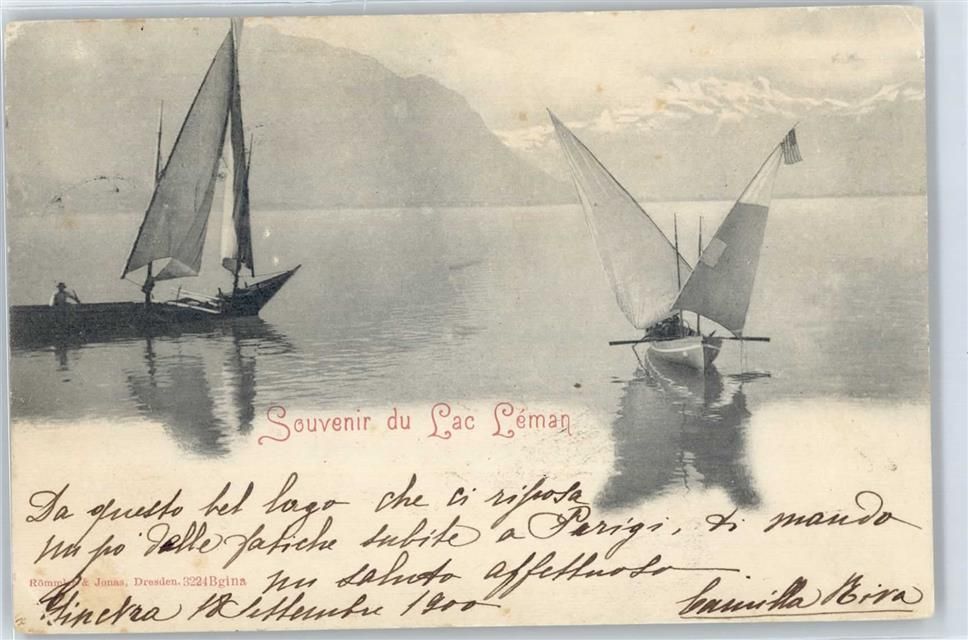 Souvenir du Lac Léman
Da questo bel lago che ci riposa
un pò delle fatiche subite a Parigi, ti mando
un saluto affettuoso
Römmler & Jonas, Dresden. 3224Bgina
Ginevra 18 Settembre 1900
Camilla Riva